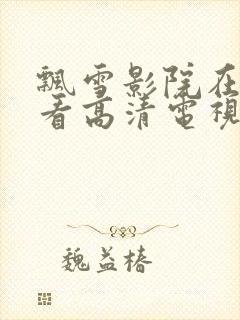 飄雪影院在
看高清電視
魏益椿